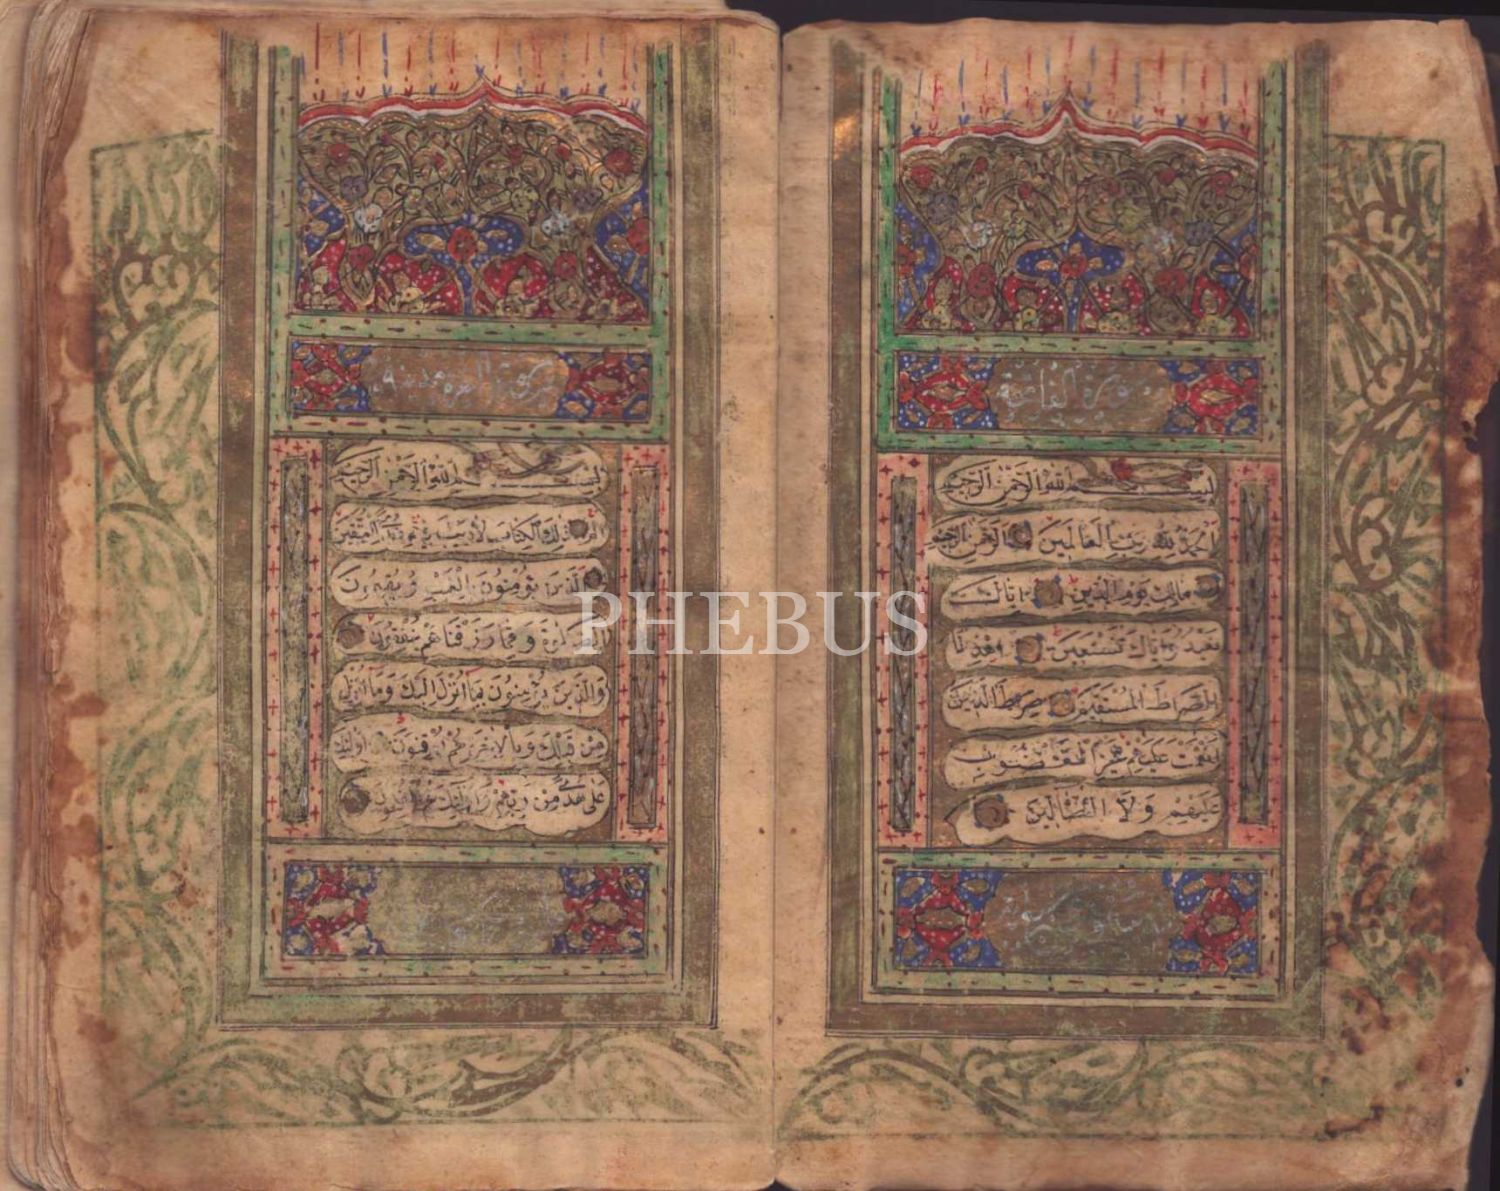 سورة الفاتحة
بسم الله الرحمن الرحيم
الحمد لله رب العالمين الرحمن الرحيم
مالك يوم الدين اياك
نعبد واياك نستعين اهدنا
الصراط المستقيم صراط الذين
انعمت عليهم غير المغضوب
عليهم ولا الضالين
سورة البقرة مدنية
بسم الله الرحمن الرحيم
الم ذلك الكتاب لا ريب فيه هدى للمتقين
الذين يؤمنون بالغيب ويقيمون
الصلوة ومما رزقناهم ينفقون
والذين يؤمنون بما انزل اليك وما انزل
من قبلك وبالاخرة هم يوقنون اولئك
على هدى من ربهم واولئك هم المفلحون
PHEBUS